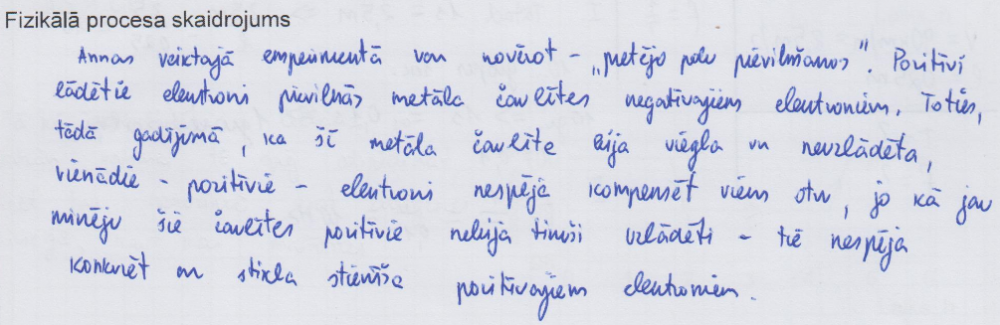 Fizikālā procesa skaidrojums
Annas veiktajā emperimentā var novērot - „pretējo polu pievilkšanos”. Pozitīvi
lādētie elektroni pievilkās metāla čaulītes negatīvajiem elektroniem. Toties,
tādā gadījumā, ka šī metāla čaulīte bija viegla un neuzlādēta,
vienādie - pozitīvie - elektroni nespēja kompensēt viens otru, jo kā jau
minēju šie čaulītes pozitīvie nebija tik uzlādēti - tie nespēja
konkurēt ar stikla stienīša pozitīvajiem elektroniem.